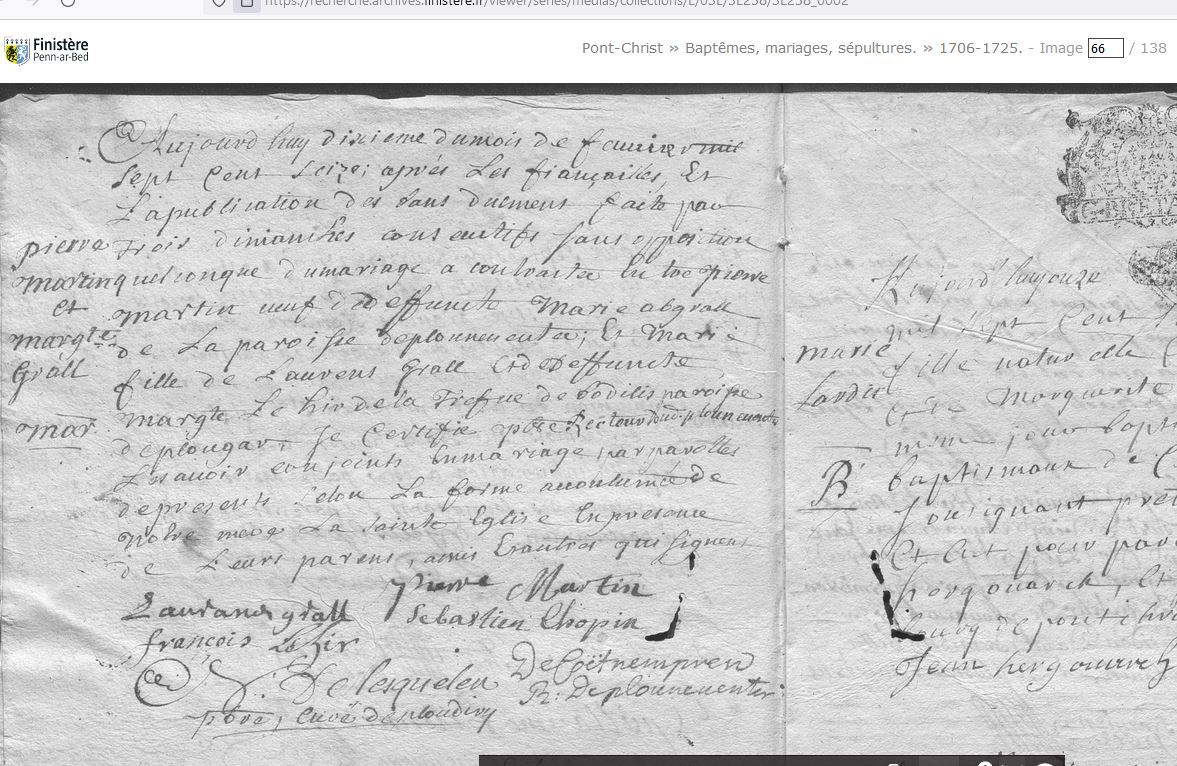 https://recherche.archives.finistere.fr/viewer/series/medias/collections/E/03E/3E238/3E238_0002
Finistère
Penn-ar-Bed
Pont-Christ » Baptêmes, mariages, sépultures. » 1706-1725. - Image 66 / 138
Aujourd'huy dixieme du mois de fauvrier mil
sept cent seize; aprés Les fiançailles Et
La publication des bans duement faite par
Trois dimanches consecutifs sans opposition
quelconque du mariage a contracter Entre pierre
martin veuf de deffuncte Marie abgrall
de La paroisse deplouneuenter; Et Marie
fille de Laurens Grall Et de deffuncte
Margte Le hir de la Trefue de bodilis paroisse
deplougar, Je Certifie Recteur deplouneuenter
Les auoir conjoints En mariage par parolles
de presents selon La forme accoutumée de
Notre mere La sainte Eglise En presence
de Leurs parens, amis Et autres qui signent
pierre
martin
et
margte
Grall
mar
Pierre Martin
Laurans grall Sebastien Chopin
françois Le hir
De Coëtnempren
De lesquelen R. deplouneuenter
curé deploudiry
Aujourd'huy onze
mil sept Cent
fille naturelle
Marguerite
même jour bapt
baptismaux de
sousignant pret
Et Ont pour par
hergouarch, Et
de pontchri
Jean hergouarch
marie
B